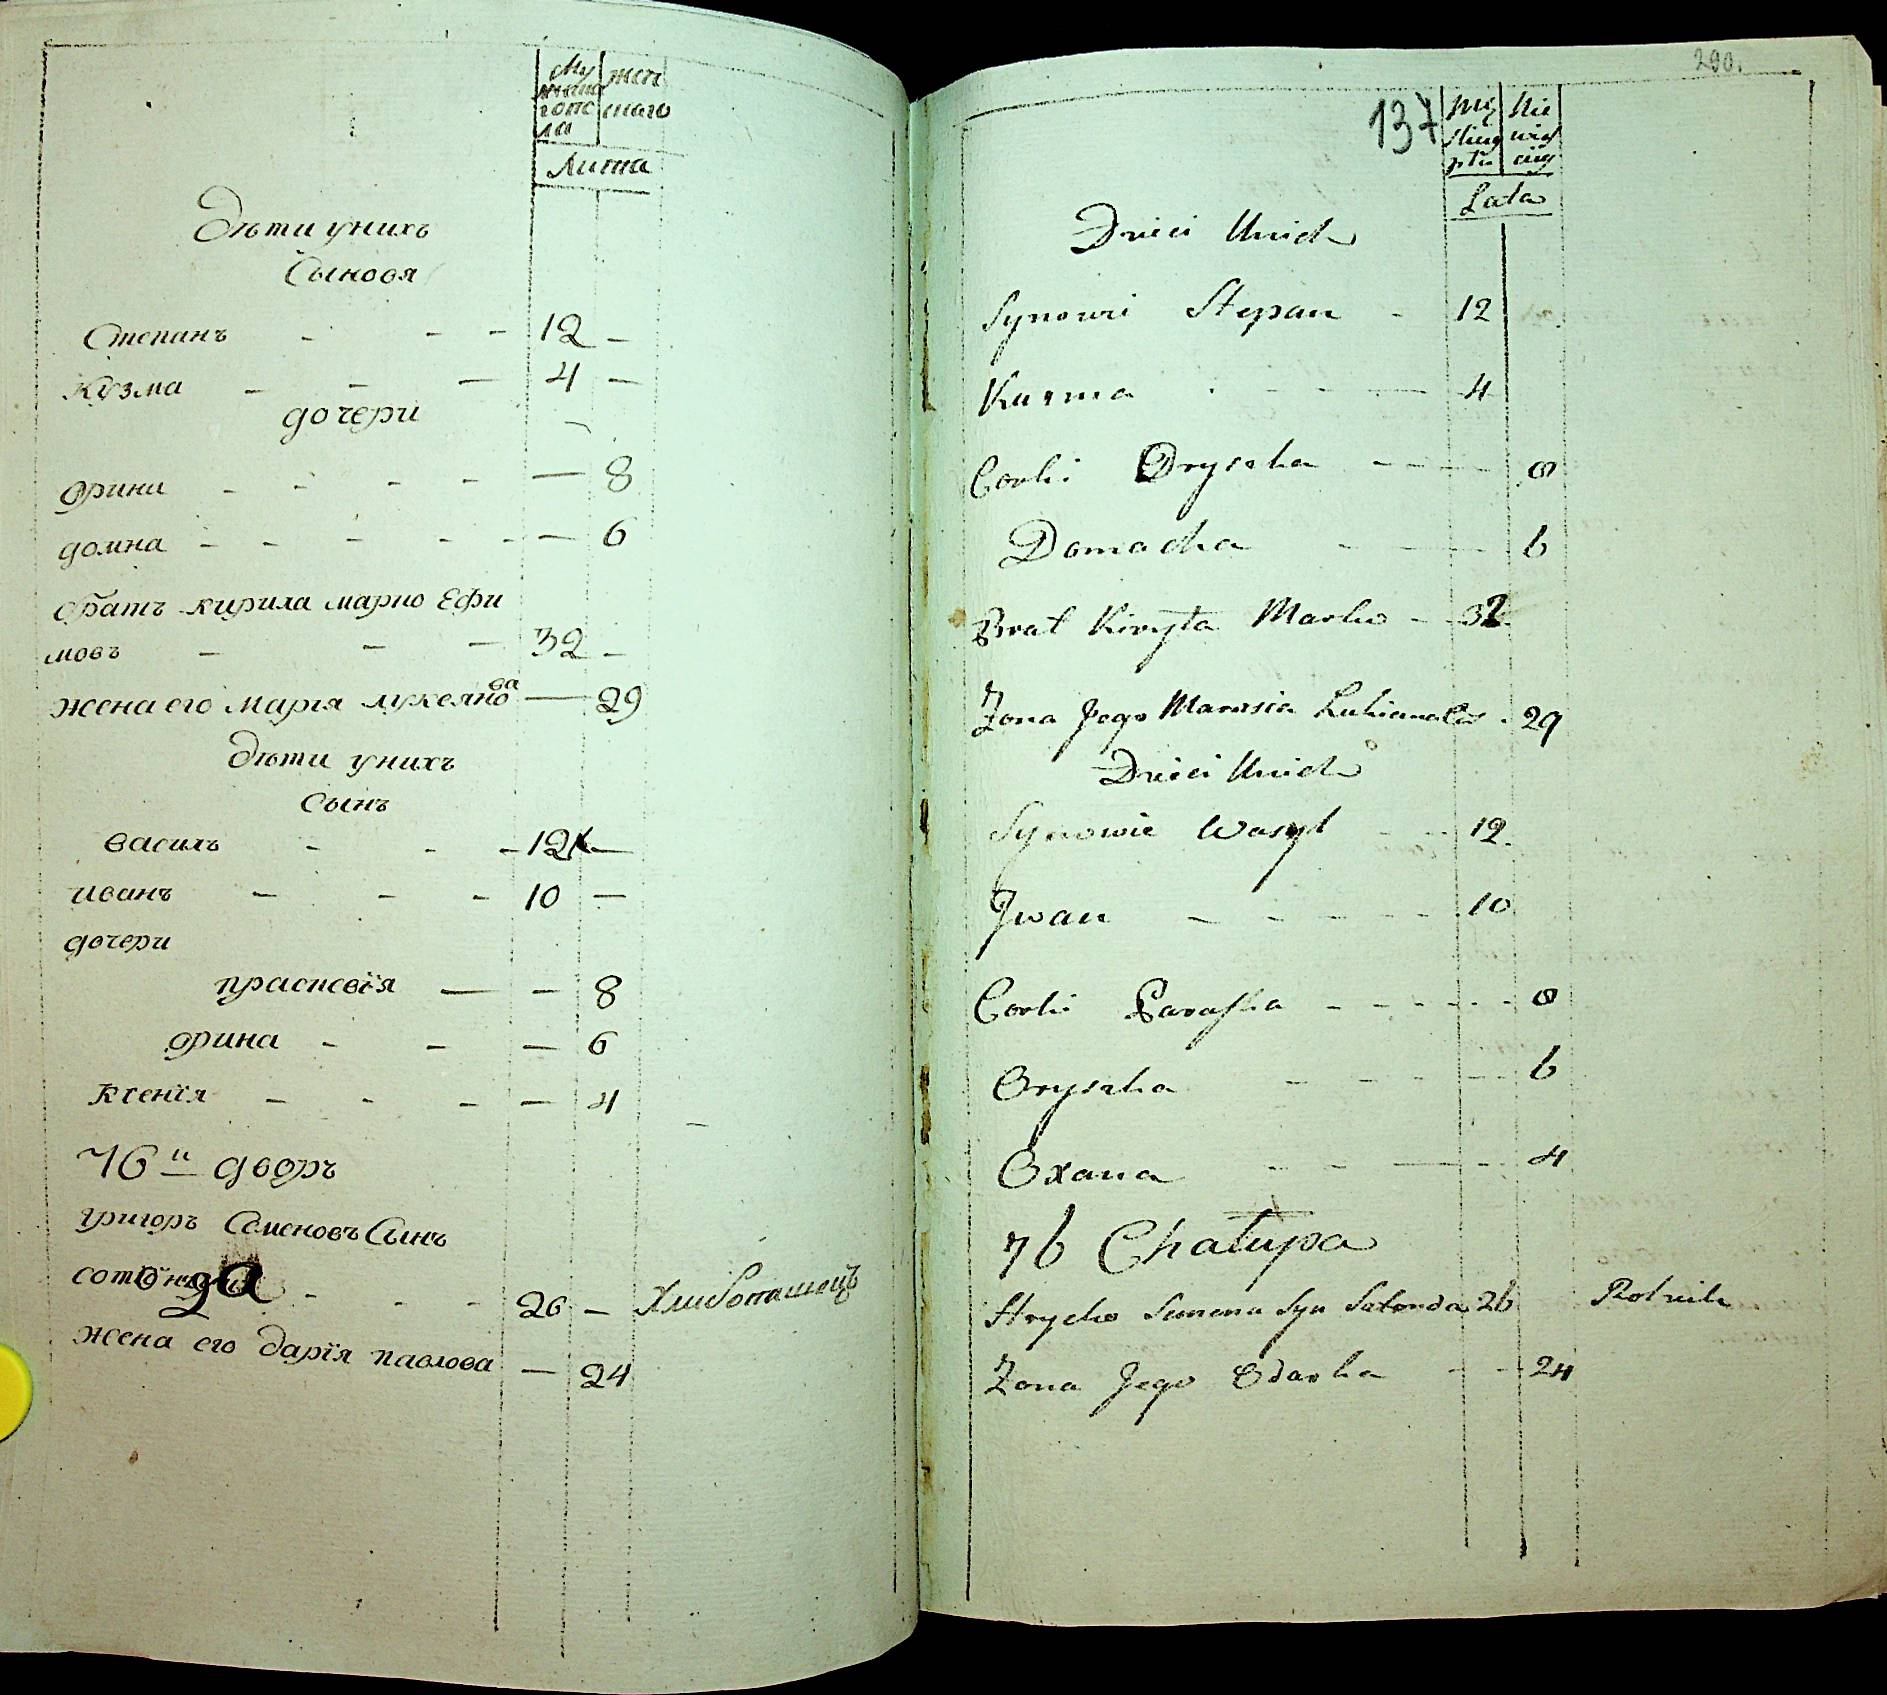 Му жеп
жеска
гопо скаго
ла
Лита
Дѣти унихъ
Сыновя
Степанъ - - - 12 -
Кузма - - - 4 -
дочери
Орина - - - - - 8
домна - - - - - 6
братъ кирила марко Ефи
мовъ - - - 32 -
жена его Марія лукеянова - 29
Дѣти унихъ
Сынъ
василь - - - 12 -
иванъ - - - 10 -
дочери
праскевія - - 8
орина - - - 6
ксенія - - - - 4
76й дворъ
григоръ Семеновъ Сынъ
сотонда - - - 26 - Хлибопашецъ
жена его дарія павлова - 24
290.
137
Lata
Dzieci Unich
Synowie Stepan - 12
Kuzma - - - - 4
Corki Oryszka - - - 8
Domacha - - - 6
Brat Kiryła Marko - 32
Zona Jego Marusia Lukianowa - 29
Dzieci Unich
Synowie Wasyl - - 12.
Jwan - - - - - 10
Corki Paraska - - - - - 8
Oryszka - - - - 6
Oxana - - - - 4
76 Chałupa
Hrycko Semena Syn Satonda 26 Rolnik
Zona Jego Odarka - - 24